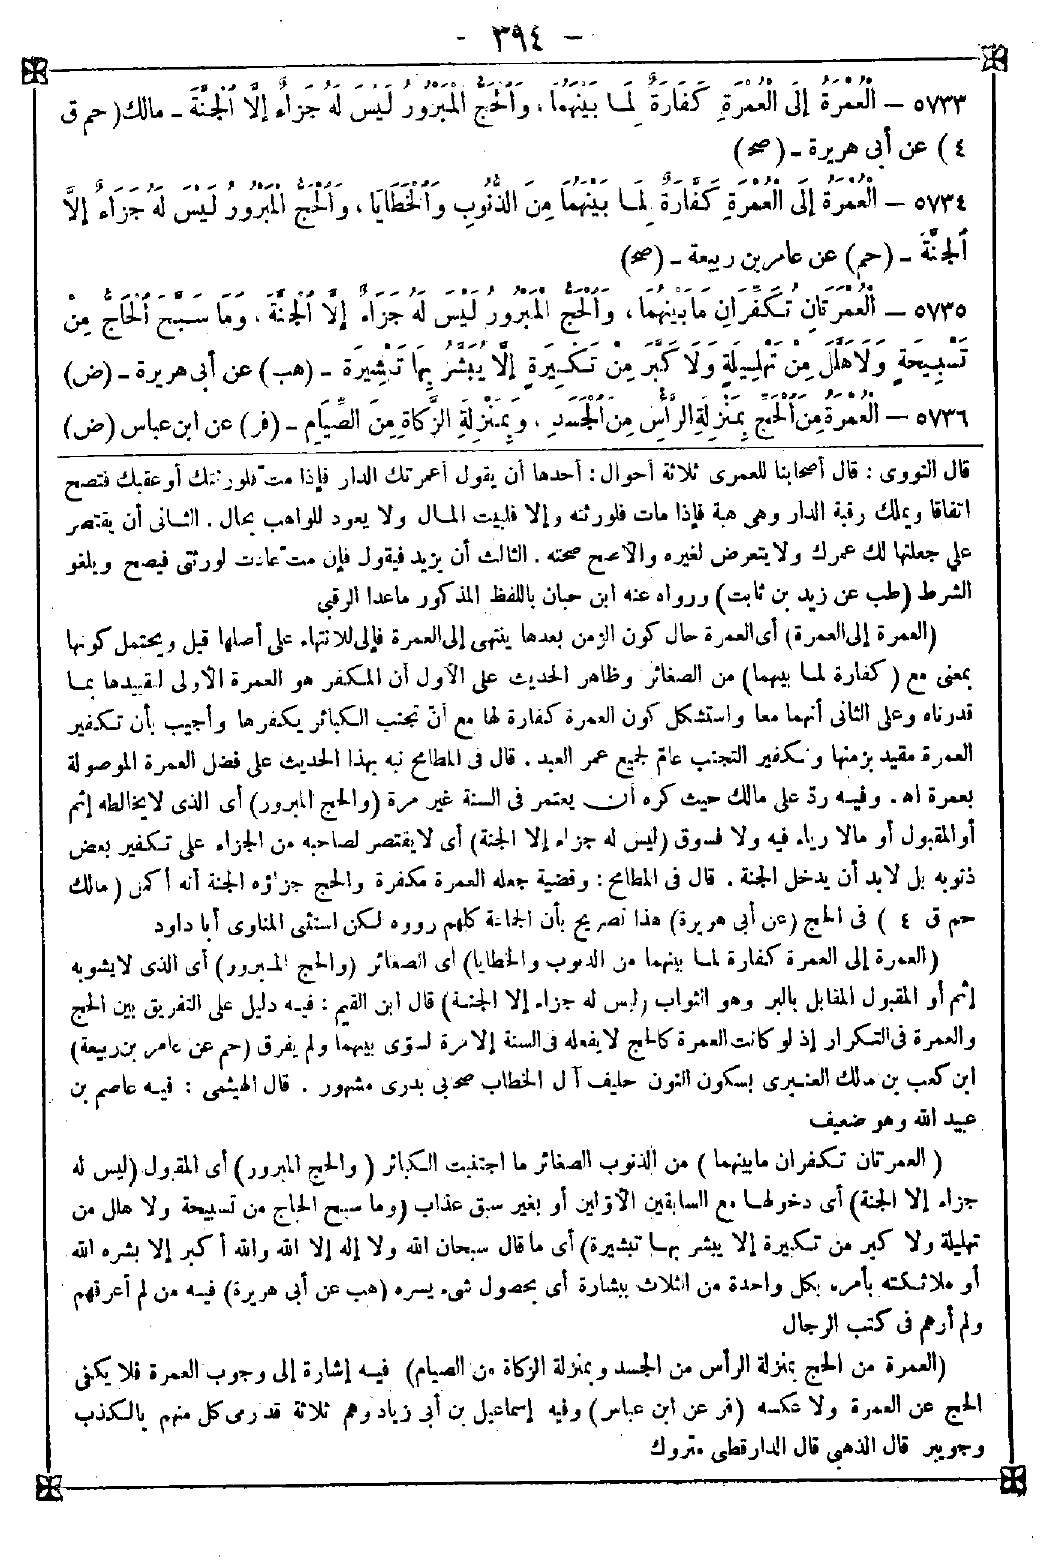 - ٣٩٤ -
٥٧٣٣ - الْعُمْرَةُ إِلَى الْعُمْرَةِ كَفَّارَةٌ لِمَا بَيْنَهُمَا، وَالْحَجُّ الْمَبْرُورُ لَيْسَ لَهُ جَزَاءٌ إِلَّا الْجَنَّةَ - مالك (حم ق
٤) عن أبي هريرة - (صح)
٥٧٣٤ - الْعُمْرَةُ إِلَى الْعُمْرَةِ كَفَّارَةٌ لِمَا بَيْنَهُمَا مِنَ الذُّنُوبِ وَالْخَطَايَا، وَالْحَجُّ الْمَبْرُورُ لَيْسَ لَهُ جَزَاءٌ إلَّا
الْجَنَّةَ - (حم) عن عامر بن ربيعة - (صح)
٥٧٣٥ - الْعُمْرَتَانِ تُكَفِّرَانِ مَا بَيْنَهُمَا، وَالْحَجُّ الْمَبْرُورُ لَيْسَ لَهُ جَزَاءٌ إِلَّا الْجَنَّةَ، وَمَا سَبَّحَ الْحَاجُّ مِنْ
تَسْبِيحَةٍ وَلَا هَلَّلَ مِنْ تَهْلِيلَةٍ وَلَا كَبَّرَ مِنْ تَكْبِيرَةٍ إِلَّا يُبَشَّرُ بِهَا تَبْشِيرَةً - (هب) عن أبي هريرة - (ض)
٥٧٣٦ - الْعُمْرَةُ مِنَ الْحَجِّ بِمَنْزِلَةِ الرَّأْسِ مِنَ الْجَسَدِ، وَبِمَنْزِلَةِ الزَّكَاةِ مِنَ الصِّيَامِ - (فر) عن ابن عباس (ض)
قال النووى: قال أصحابنا للعمرى ثلاثة أحوال: أحدها أن يقول أعمرتك الدار فإذا مت فلورثتك أو عقبك فتصح
اتفاقا ويملك رقبة الدار وهى هبة فإذا مات فلورثته وإلا فلبيت المال ولا يعود للواهب بحال. الثانى أن يقتصر
على جعلتها لك عمرك ولا يتعرض لغيره والأصح صحته. الثالث أن يزيد فيقول فإن مت عادت لورثتى فيصح ويلغو
الشرط (طب عن زيد بن ثابت) ورواه عنه ابن حبان باللفظ المذكور ماعدا الرقبى
(العمرة إلى العمرة) أى العمرة حال كون الزمن بعدها ينتهى إلى العمرة فإلى للانتهاء على أصلها قيل ويحتمل كونها
بمعنى مع (كفارة لما بينهما) من الصغائر وظاهر الحديث على الأول أن المكفر هو العمرة الأولى لتقييدها بما
قدرناه وعلى الثانى أنهما معا واستشكل كون العمرة كفارة لها مع أن تجنب الكبائر يكفرها وأجيب بأن تكفير
العمرة مقيد بزمنها وتكفير التجنب عام لجميع عمر العبد. قال فى المطامح نبه بهذا الحديث على فضل العمرة الموصولة
بعمرة اه. وفيه ردّ على مالك حيث كره أن يعتمر فى السنة غير مرة (والحج المبرور) أى الذى لا يخالطه إثم
أو المقبول أو مالا رياء فيه ولا فسوق (ليس له جزاء إلا الجنة) أى لا يقتصر لصاحبه من الجزاء على تكفير بعض
ذنوبه بل لابد أن يدخل الجنة. قال فى المطامح: وقضية جعله العمرة مكفرة والحج جزاؤه الجنة أنه أكمل (مالك
حم ق ٤) فى الحج (عن أبي هريرة) هذا تصريح بأن الجماعة كلهم رووه لكن استثنى المناوى أبا داود
(العمرة إلى العمرة كفارة لما بينهما من الذنوب والخطايا) أى الصغائر (والحج المبرور) أى الذى لا يشوبه
إثم أو المقبول المقابل بالبر وهو الثواب (ليس له جزاء إلا الجنة) قال ابن القيم: فيه دليل على التفريق بين الحج
والعمرة فى التكرار إذ لو كانت العمرة كالحج لا يفعله فى السنة إلا مرة لسوّى بينهما ولم يفرق (حم عن عامر بن ربيعة)
ابن كعب بن مالك العنبرى بسكون النون حليف آل الخطاب صحابى بدرى مشهور. قال الهيثمى: فيه عاصم بن
عبيد الله وهو ضعيف
(العمرتان تكفران مابينهما) من الذنوب الصغائر ما اجتنبت الكبائر (والحج المبرور) أى المقبول (ليس له
جزاء إلا الجنة) أى دخولها مع السابقين الأولين أو بغير سبق عذاب (وما سبح الحاج من تسبيحة ولا هلل من
تهليلة ولا كبر من تكبيرة إلا يبشر بها تبشيرة) أى ما قال سبحان الله ولا إله إلا الله والله أكبر إلا بشره الله
أو ملائكته بأمره بكل واحدة من الثلاث ببشارة أى بحصول شىء يسره (هب عن أبي هريرة) فيه من لم أعرفهم
ولم أرهم فى كتب الرجال
(العمرة من الحج بمنزلة الرأس من الجسد وبمنزلة الزكاة من الصيام) فيه إشارة إلى وجوب العمرة فلا يكفى
الحج عن العمرة ولا عكسه (فر عن ابن عباس) وفيه إسماعيل بن أبي زياد وهم ثلاثة قد رمى كل منهم بالكذب
وجويبر قال الذهبي قال الدارقطنى متروك